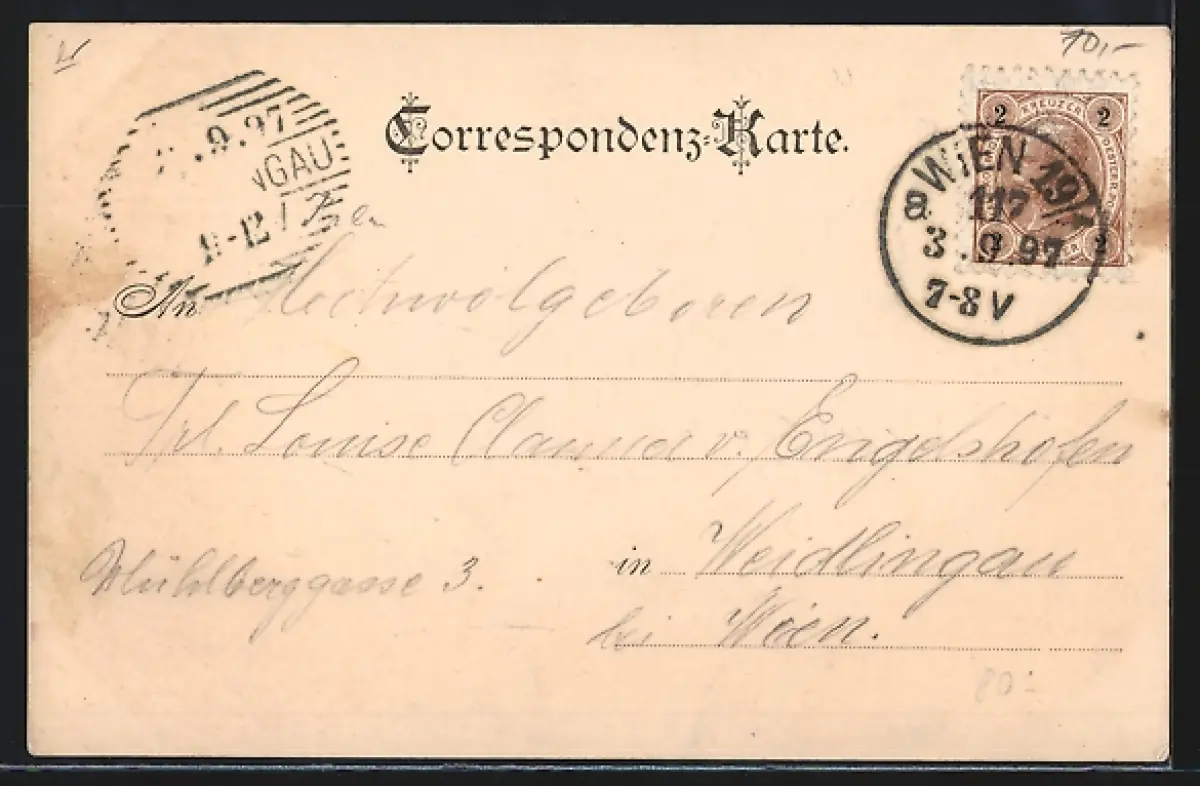 10,-
Correspondenz-Karte.
.9.97
NGAU
9-12
WIEN 19/1
a 117
3 .9.97
7-8 V
2 KREUZER 2
2
An Hochwolgeboren
Frl. Louise v. Engelshofen
in Weidlingau
Mühlberggasse 3.
bei Wien.
80